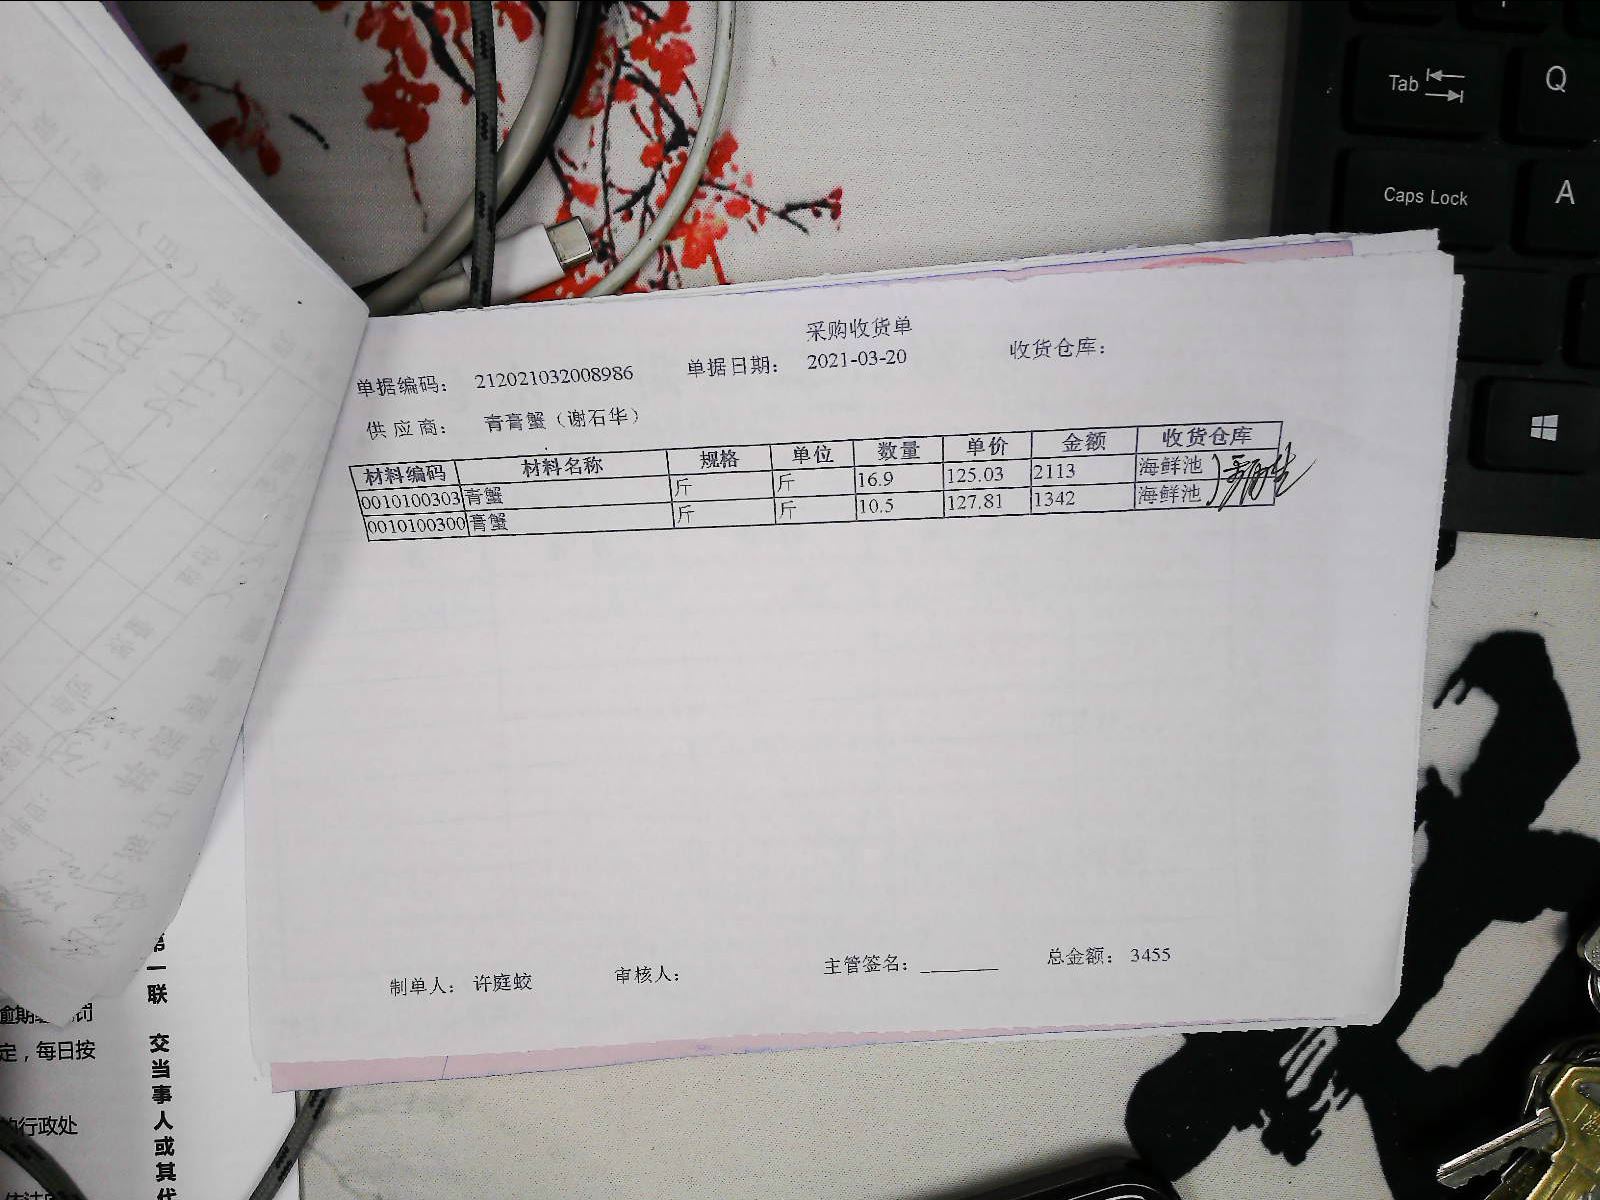 Tab
Q
Caps Lock
A
采购收货单
单据编码： 212021032008986 单据日期： 2021-03-20 收货仓库：
供应商： 青膏蟹（谢石华）
材料编码 材料名称 规格 单位 数量 单价 金额 收货仓库
0010100303 青蟹 斤 斤 16.9 125.03 2113 海鲜池
0010100300 膏蟹 斤 斤 10.5 127.81 1342 海鲜池
制单人： 许庭蛟 审核人： 主管签名： 总金额： 3455
第一联 交当事人或其代
逾期
定，每日按
行政处